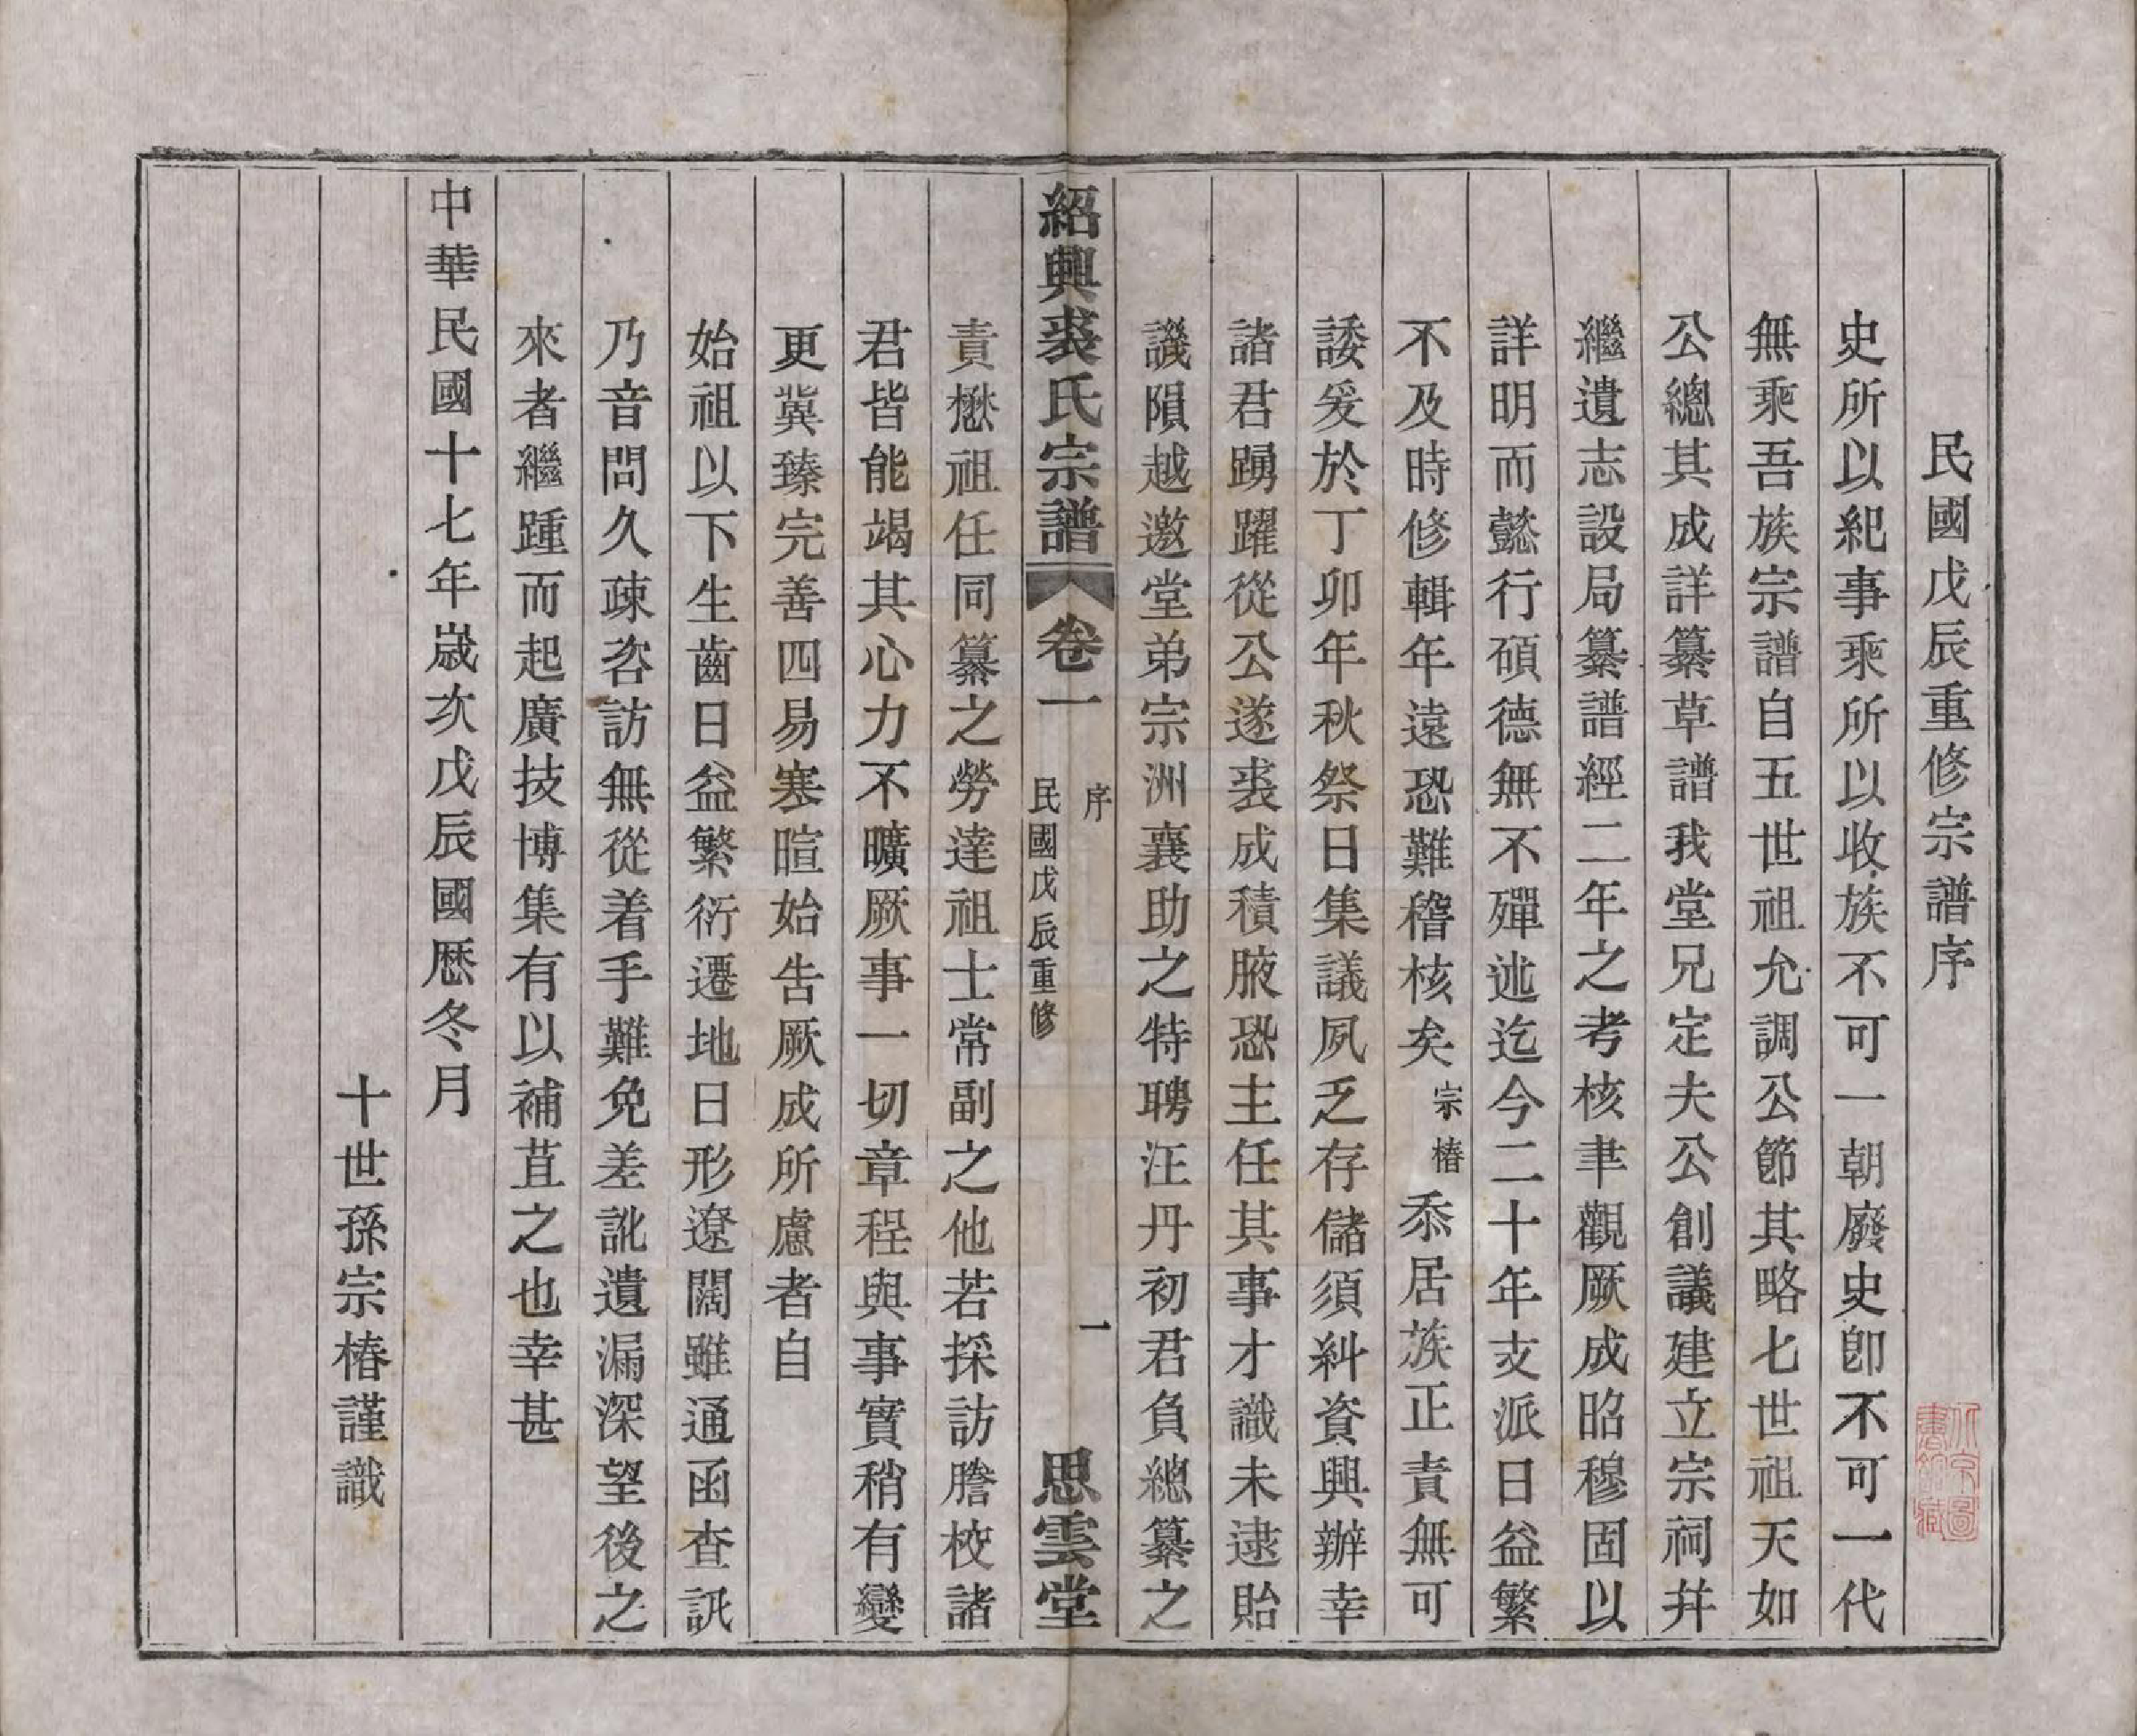 民國戊辰重修宗譜序
史所以紀事乘所以收族不可一朝廢史卽不可一代
無乘吾族宗譜自五世祖允調公節其略七世祖天如
公總其成詳纂草譜我堂兄定夫公創議建立宗祠幷
繼遺志設局纂譜經二年之考核聿觀厥成昭穆固以
詳明而懿行碩德無不殫述迄今二十年支派日益繁
不及時修輯年遠恐難稽核矣宗椿忝居族正責無可
諉爰於丁卯年秋祭日集議夙乏存儲須糾資興辦幸
諸君踴躍從公遂裘成積腋恐主任其事才識未逮貽
譏隕越邀堂弟宗洲襄助之特聘汪丹初君負總纂之
紹興裘氏宗譜 卷一
序
民國戊辰重修
一
思雲堂
責懋祖任同纂之勞達祖士常副之他若採訪謄校諸
君皆能竭其心力不曠厥事一切章程與事實稍有變
更冀臻完善四易寒暄始告厥成所慮者自
始祖以下生齒日益繁衍遷地日形遼闊雖通函查訊
乃音問久疎咨訪無從着手難免差訛遺漏深望後之
來者繼踵而起廣技博集有以補苴之也幸甚
中華民國十七年歲次戊辰國歷冬月
十世孫宗椿謹識